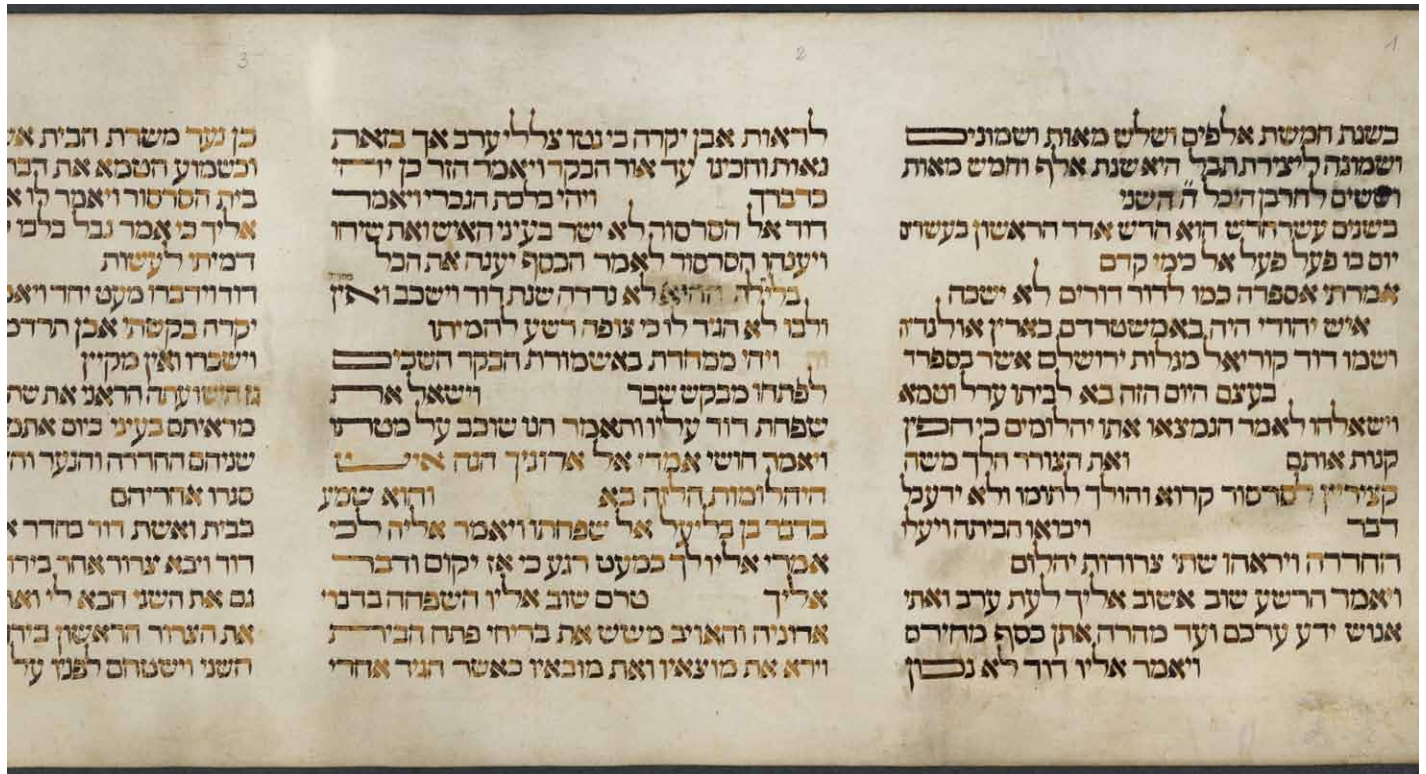 1
בשנת חמשת אלפים ושלש מאות ושמונים
ושמונה ליצירת תבל היא שנת אלף וחמש מאות
וששים לחרבן היכל ה' השני
בשנים עשר חדש הוא חדש אדר הראשון בעשוים
יום בו פעל פעל אל כימי קדם
אמרתי אספרה כמו לדור דורים לא ישכח
איש יהודי היה באמשטרדם בארץ אולנדה
ושמו דוד קוריאל מגלות ירושלם אשר בספרד
בעצם היום הזה בא לביתו ערל וטמא
וישאלהו לאמר הנמצאו אתו יהלומים כי חפץ
קנות אותם ואת הצורר הלך משה
לסרסור קרוא והולך לתומו ולא ידע כל
דבר ויבואו הביתה ויעלו
החדרה ויראהו שתי צרורות יהלום
ויאמר הרשע שוב אשוב אליך לעת ערב ואתי
אנוש ידע ערכם ועד מהרה אתן כסף מחירם
ויאמר אליו דוד לא נכון
2
לראות אבן יקרה כי נטו צללי ערב אך בזאת
נאות וחכינו עד אור הבקר ויאמר הזר כן יהי
כדברך ויהי בלכת הנכרי ויאמר
דוד אל הסרסור לא ישר בעיני האיש ואת שיחו
ויענהו הסרסור לאמר הכסף יענה את הכל
בלילה ההיא לא נדדה שנת דוד וישכב ואין
ולבו לא הגיד לו כי צופה רשע להמיתו
ויהי ממחרת באשמורת הבקר השכים
לפתחו מבקש שבר וישאל את
שפחת דוד עליו ותאמר הנו שוכב על מטתו
ויאמר חושי אמרי אל אדוניך הנה איש
היהלומות הלזה בא והוא שמע
בדבר בן בליעל אל שפחתו ויאמר אליה לכי
אמרי אליו לך כמעט רגע כי אז יקום ודבר
אליך טרם שוב אליו השפחה בדברי
אדוניה והאויב משש את בריחי פתח הבית
וירא את מוצאיו ואת מובאיו כאשר הגיד אחרי
3
כן נער משרת הבית
וכשמוע הטמא את
בית הסרסור ויאמר לו
אליך כי אמר נבל בלבו
דמיתי לעשות
דוד וידברו מעט יחד
יקרה בקשתי אבן
וישכרו ואין מקיין
ועתה הראני את
מראיתם בעיני כיום
שניהם החדרה והנער
סגרו אחריהם
בבית ואשת דוד בחדר
דוד ויבא צרור אחר
גם את השני הבא לי
את הצרור הראשון
השני וישטחם לפניו על